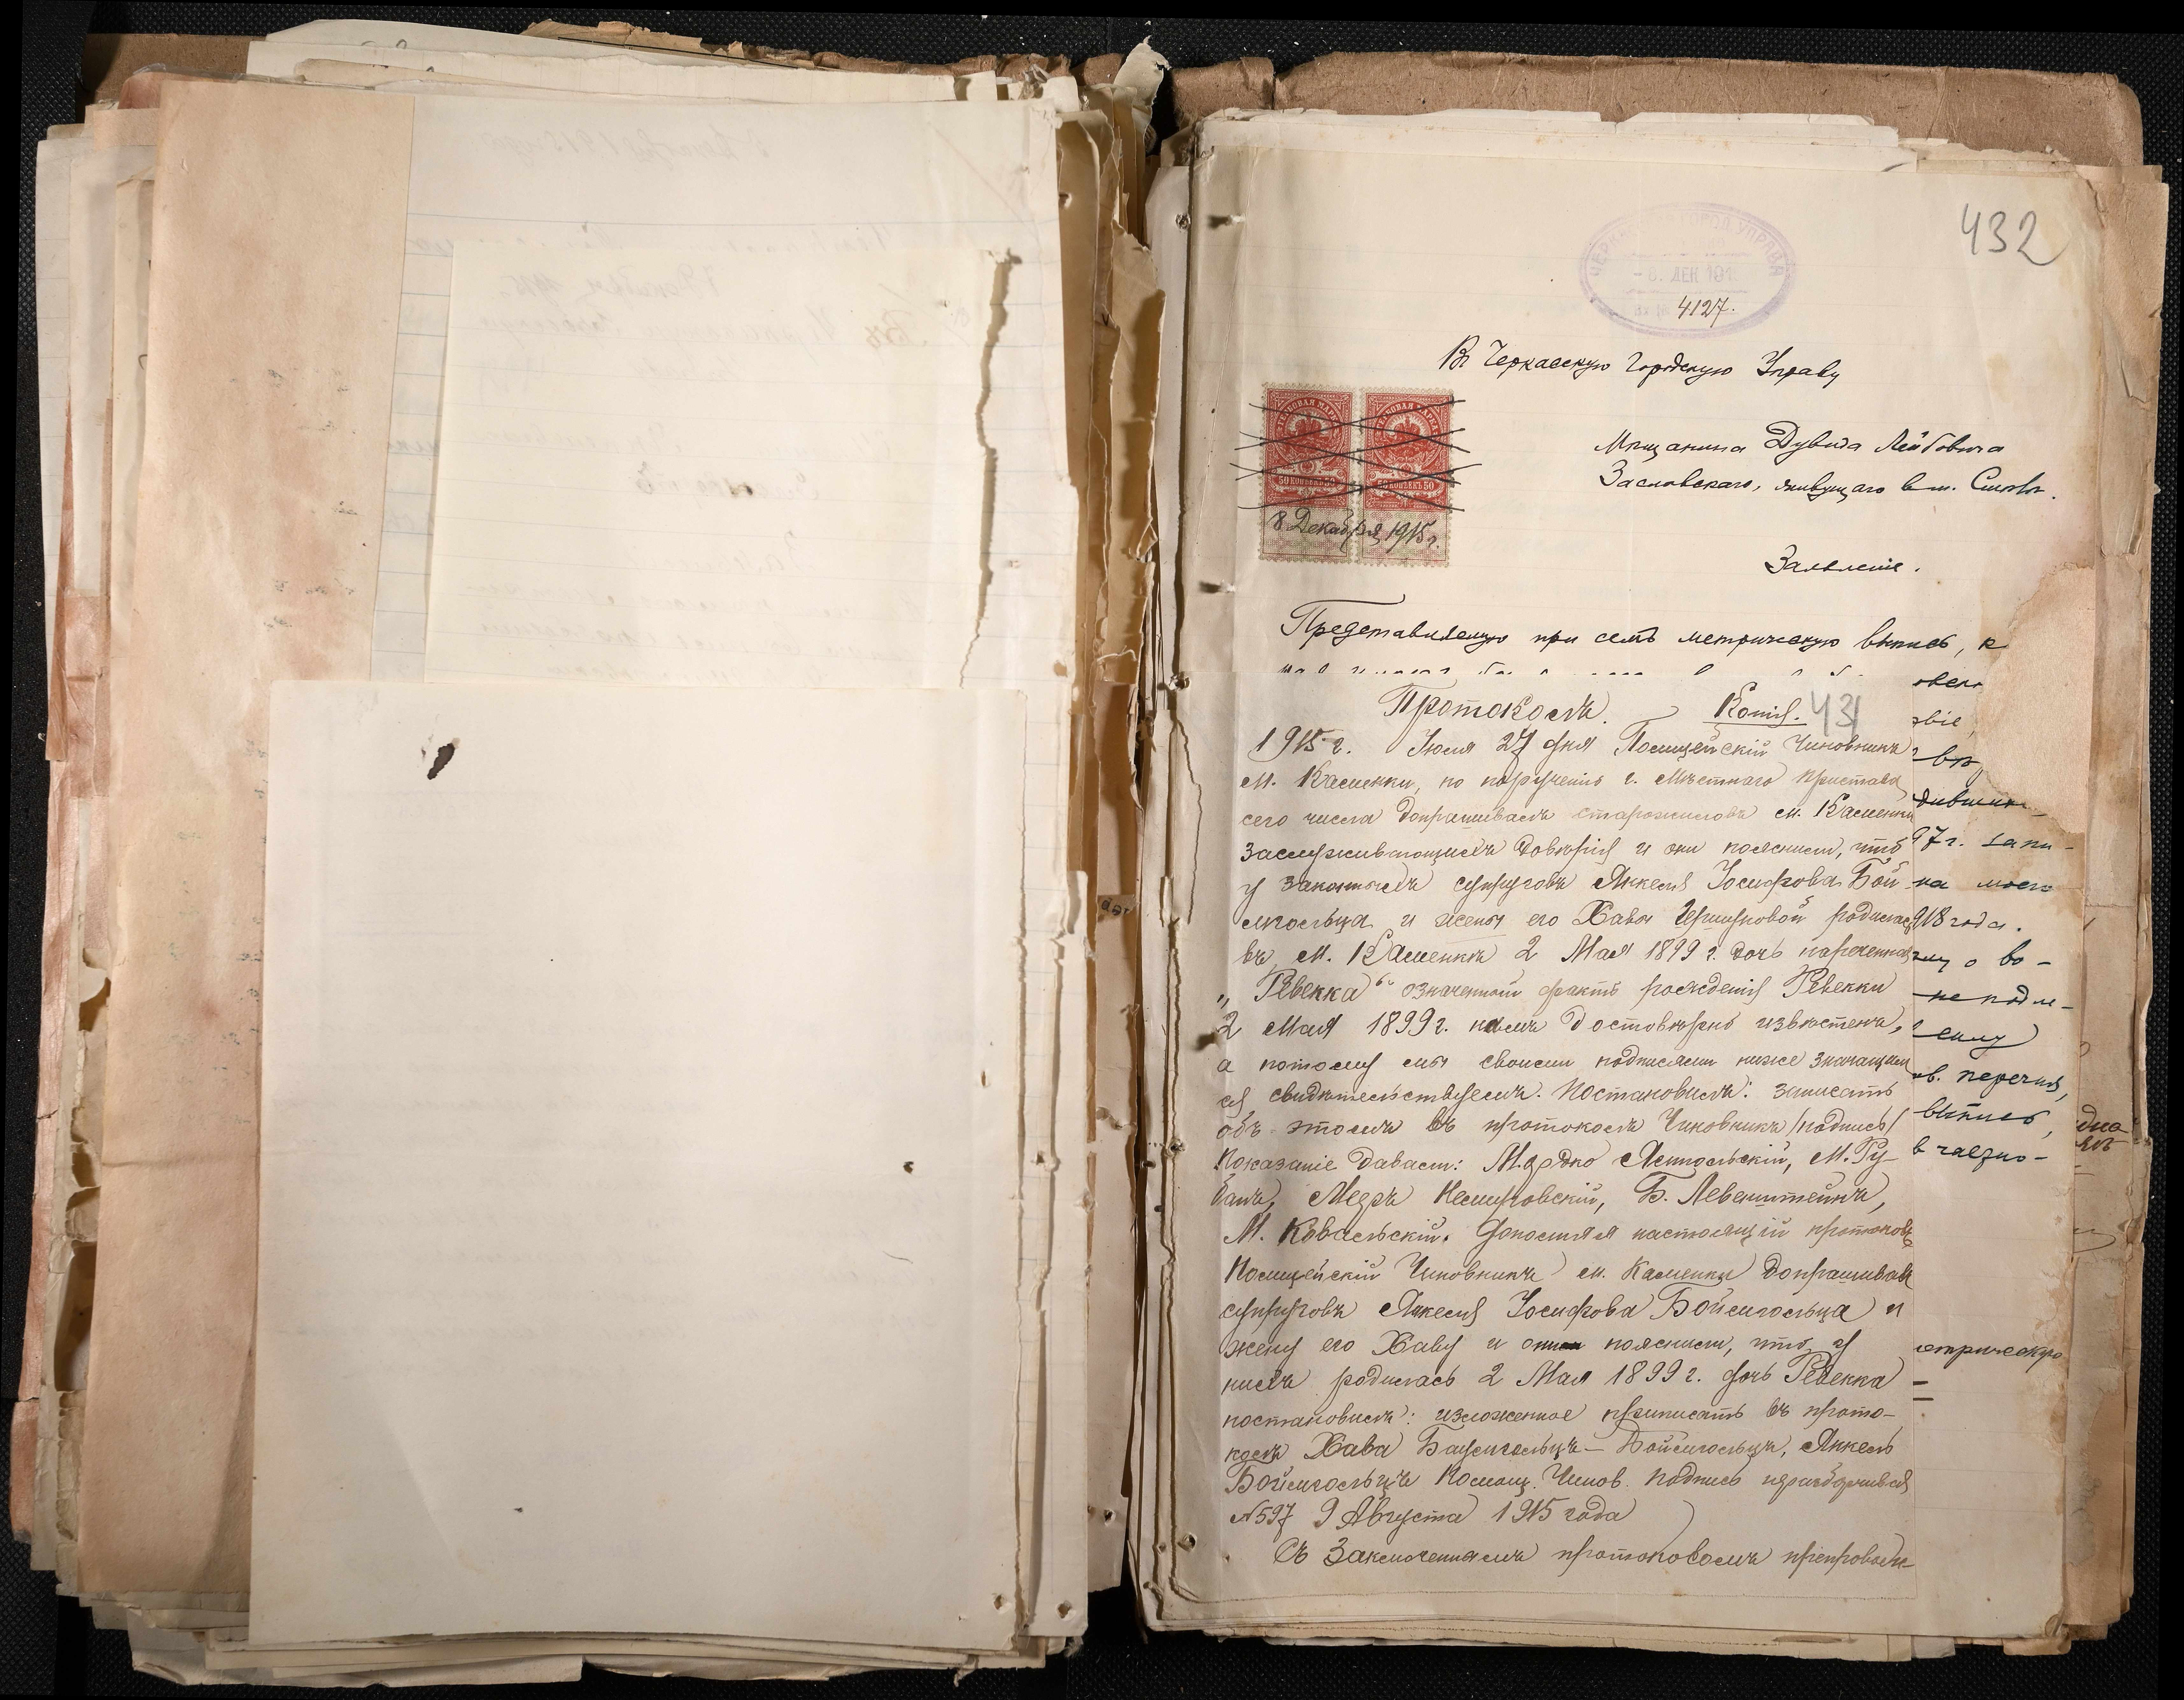 432
ГОРОД УПРАВА
- 8. ДЕК 191
4127.
Въ Черкасскую Городскую Управу
Мѣщанина Дувида Лейбовича
Заславскаго, живущаго в м.
ГЕРБОВАЯ МАРКА
50 КОПѢЕКЪ 50
50 КОПѢЕКЪ 50
8 Декабря 1915 г.
Заявленіе.
Представляемую при семъ метрическую выпись, к
Протоколъ. Копія. 431
1915 г. Іюля 27 дня Полицейскій Чиновникъ
м. Каменки, по порученію г. Мѣстнаго Пристава
сего числа допрашивалъ старожиловъ м. Каменки
заслуживающихъ довѣрія и они пояснили, что
у законныхъ супруговъ Янкеля Іосифова Бой-
мгольца и жены его Хавы Гершуновой родилась
въ м. Каменкѣ 2 Мая 1899 г. дочь нареченная
„Ревекка“ означенный фактъ рожденія Ревекки
2 Мая 1899 г. намъ достовѣрно извѣстенъ,
а потому мы своими подписями ниже значащим
ся свидѣтельствуемъ. Постановилъ: записать
объ этомъ въ протоколъ Чиновникъ /подпись/
Показаніе давали: Мордко Ямпольскій, М. Ру-
банъ, Мееръ Немировскій, Б. Левенштейнъ,
М. Ковальскій. Дополняя настоящій протоколъ
Полицейскій Чиновникъ м. Каменки допрашивалъ
супруговъ Янкеля Іосифова Боймгольца и
жену его Хаву и они пояснили, что у
нихъ родилась 2 Мая 1899 г. дочь Ревекка
постановилъ: изложенное приписать въ прото-
колъ Хава Баумгольцъ – Боймгольцъ, Янкель
Боймгольцъ Полиц. Чинов. подпись неразборчивая
№597 9 Августа 1915 года
Съ заключеннымъ протоколомъ препровож-
овѣ
97 г. запи-
на моего
918 года.
о во-
не подле-
сему
выпись,
етрическую